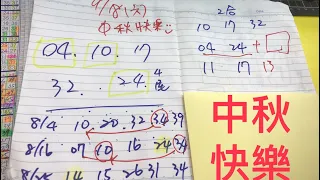 9/18(六)
中秋快樂
04. 10. 17
32. 24. 4尾
8/4 10 20. 32 34 39
8/16 07 10 16 24 34
14 15 26 31 34
2合
10 17 32
04 24 +
11 17 13
中秋
快樂